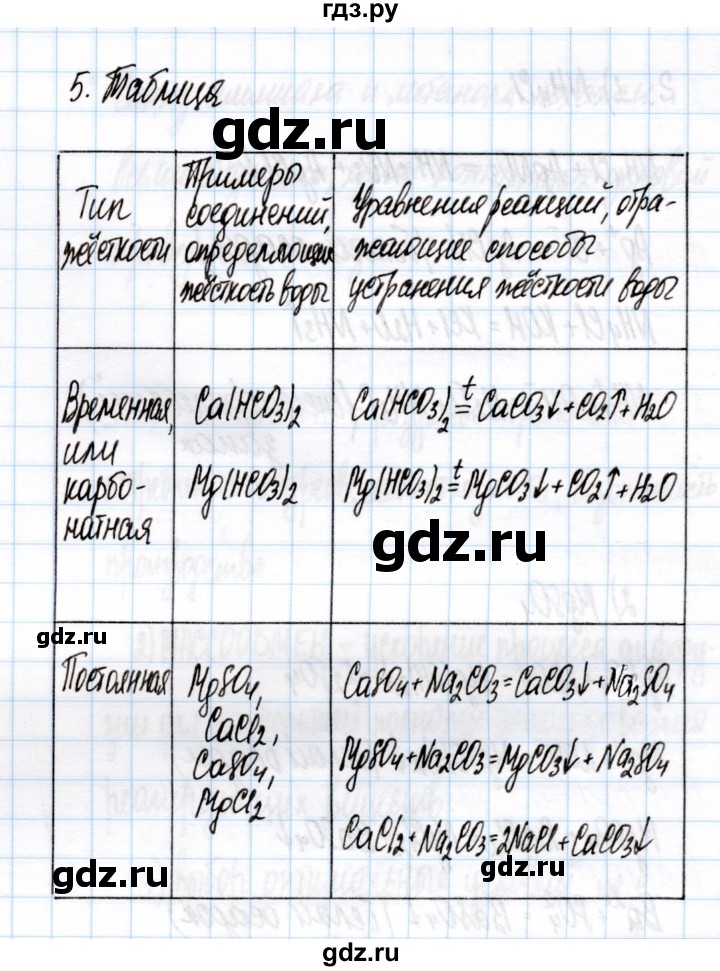 гдз.ру
5. Таблица
gdz.ru
Тип
жёсткости
Примеры
соединений,
определяющих
жёсткость воды
Уравнения реакций, отра-
жающие способы
устранения жёсткости воды
Временная,
или
карбо-
натная
Ca(HCO3)2
Mg(HCO3)2
Ca(HCO3)2 =t CaCO3↓ + CO2↑ + H2O
Mg(HCO3)2 =t MgCO3↓ + CO2↑ + H2O
gdz.ru
gdz.ru
Постоянная
MgSO4,
CaCl2,
CaSO4,
MgCl2
CaSO4 + Na2CO3 = CaCO3↓ + Na2SO4
MgSO4 + Na2CO3 = MgCO3↓ + Na2SO4
CaCl2 + Na2CO3 = 2NaCl + CaCO3↓
gdz.ru
gdz.ru
gdz.ru